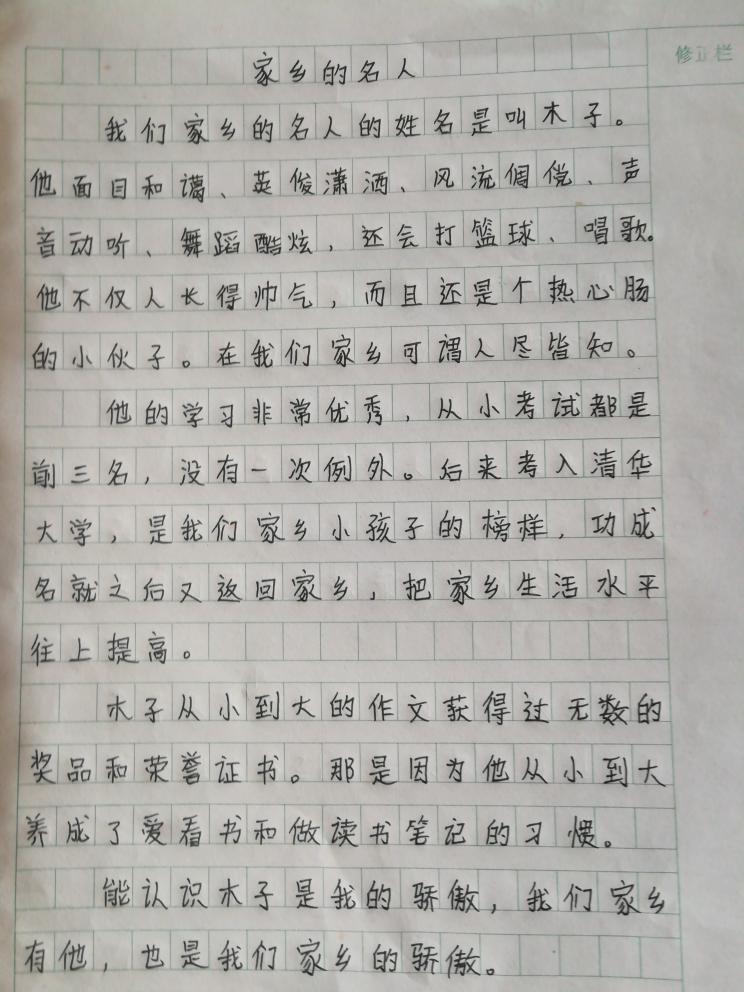 家乡的名人
修正栏
我们家乡的名人的姓名是叫木子。
他面目和蔼、英俊潇洒、风流倜傥、声
音动听、舞蹈酷炫，还会打篮球、唱歌。
他不仅人长得帅气，而且还是个热心肠
的小伙子。在我们家乡可谓人尽皆知。
他的学习非常优秀，从小考试都是
前三名，没有一次例外。后来考入清华
大学，是我们家乡小孩子的榜样，功成
名就之后又返回家乡，把家乡生活水平
往上提高。
木子从小到大的作文获得过无数的
奖品和荣誉证书。那是因为他从小到大
养成了爱看书和做读书笔记的习惯。
能认识木子是我的骄傲，我们家乡
有他，也是我们家乡的骄傲。